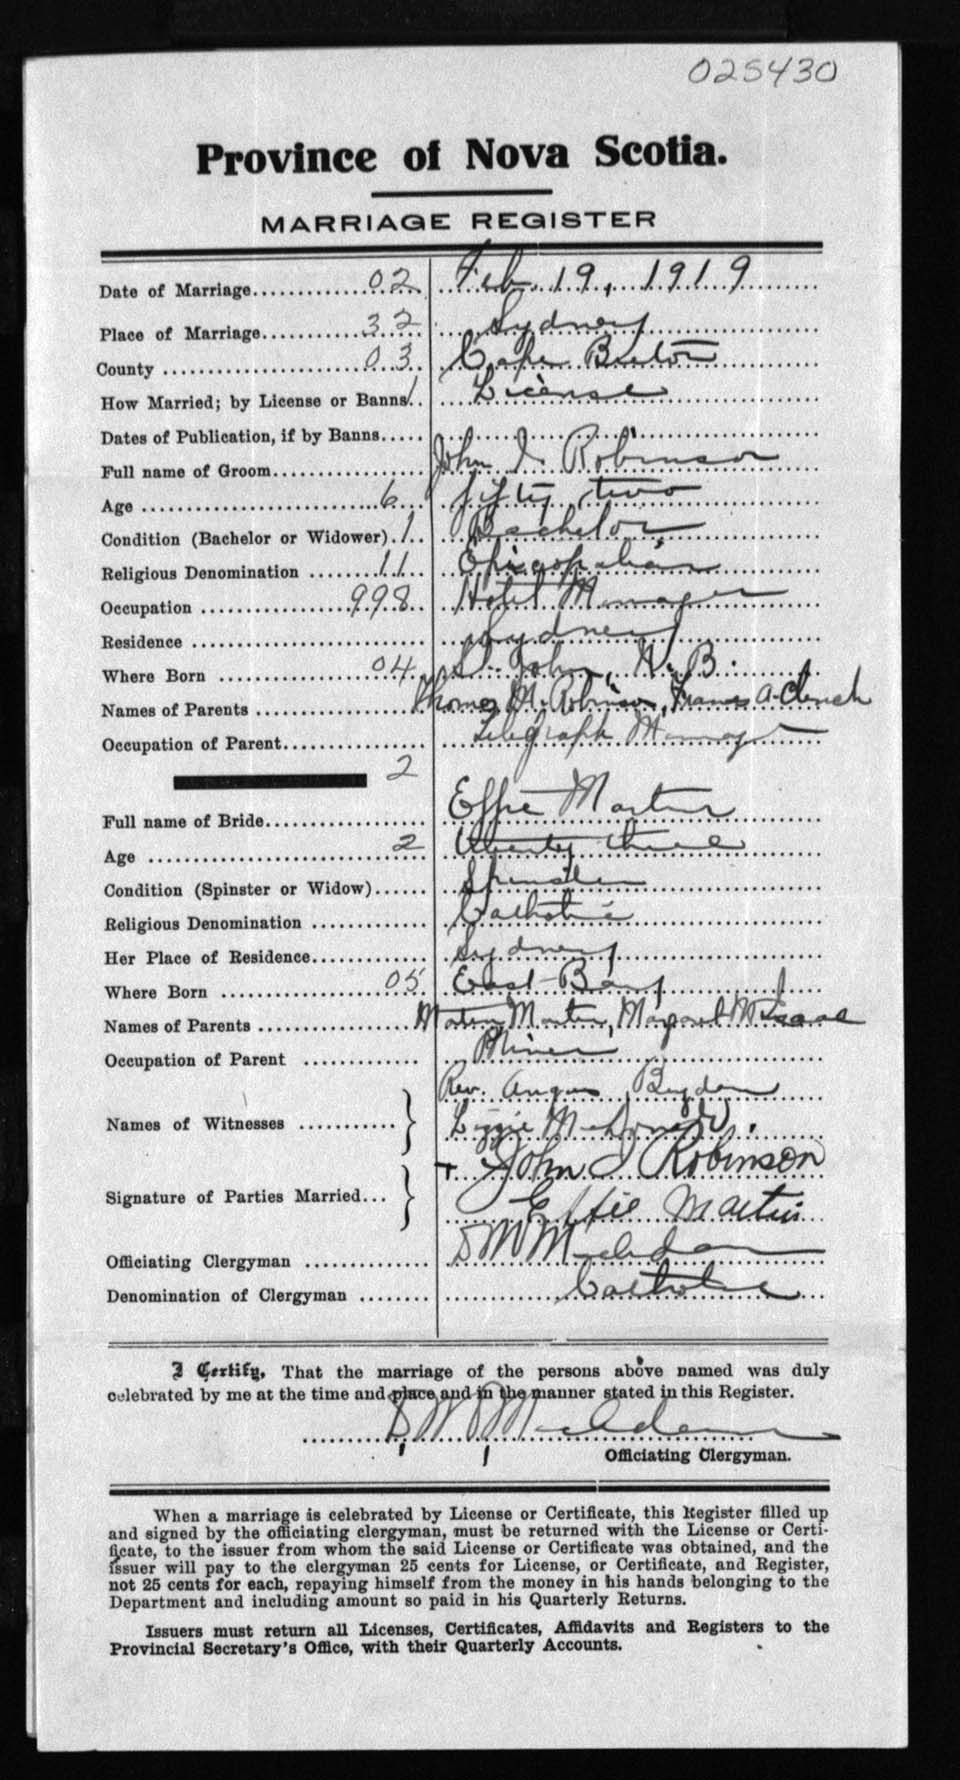 025430
Province of Nova Scotia.
MARRIAGE REGISTER
Date of Marriage 02 Feb. 19, 1919
Place of Marriage 32 Sydney
County 03 Cape Breton
How Married; by License or Banns 1 License
Dates of Publication, if by Banns
Full name of Groom John I. Robinson
Age 6 fifty two
Condition (Bachelor or Widower) 1 Bachelor
Religious Denomination 11 Episcopalian
Occupation 998 Hotel Manager
Residence Sydney
Where Born 04 St. John, N. B.
Names of Parents Thomas M. Robinson, Frances A. Clinch
Occupation of Parent Telegraph Manager
2
Full name of Bride Effie Martin
Age 2 twenty three
Condition (Spinster or Widow) Spinster
Religious Denomination Catholic
Her Place of Residence Sydney
Where Born 05 East Bay
Names of Parents Martin Martin, Margaret McIsaac
Occupation of Parent Miner
Rev. Angus Bryden
Names of Witnesses
Lizzie McDonald.
John I Robinson
Signature of Parties Married
Effie Martin
Officiating Clergyman D M MacAdam
Denomination of Clergyman Catholic
I Certify, That the marriage of the persons above named was duly
celebrated by me at the time and place and in the manner stated in this Register.
D M MacAdam
Officiating Clergyman.
When a marriage is celebrated by License or Certificate, this Register filled up
and signed by the officiating clergyman, must be returned with the License or Certi-
ficate, to the issuer from whom the said License or Certificate was obtained, and the
issuer will pay to the clergyman 25 cents for License, or Certificate, and Register,
not 25 cents for each, repaying himself from the money in his hands belonging to the
Department and including amount so paid in his Quarterly Returns.
Issuers must return all Licenses, Certificates, Affidavits and Registers to the
Provincial Secretary's Office, with their Quarterly Accounts.